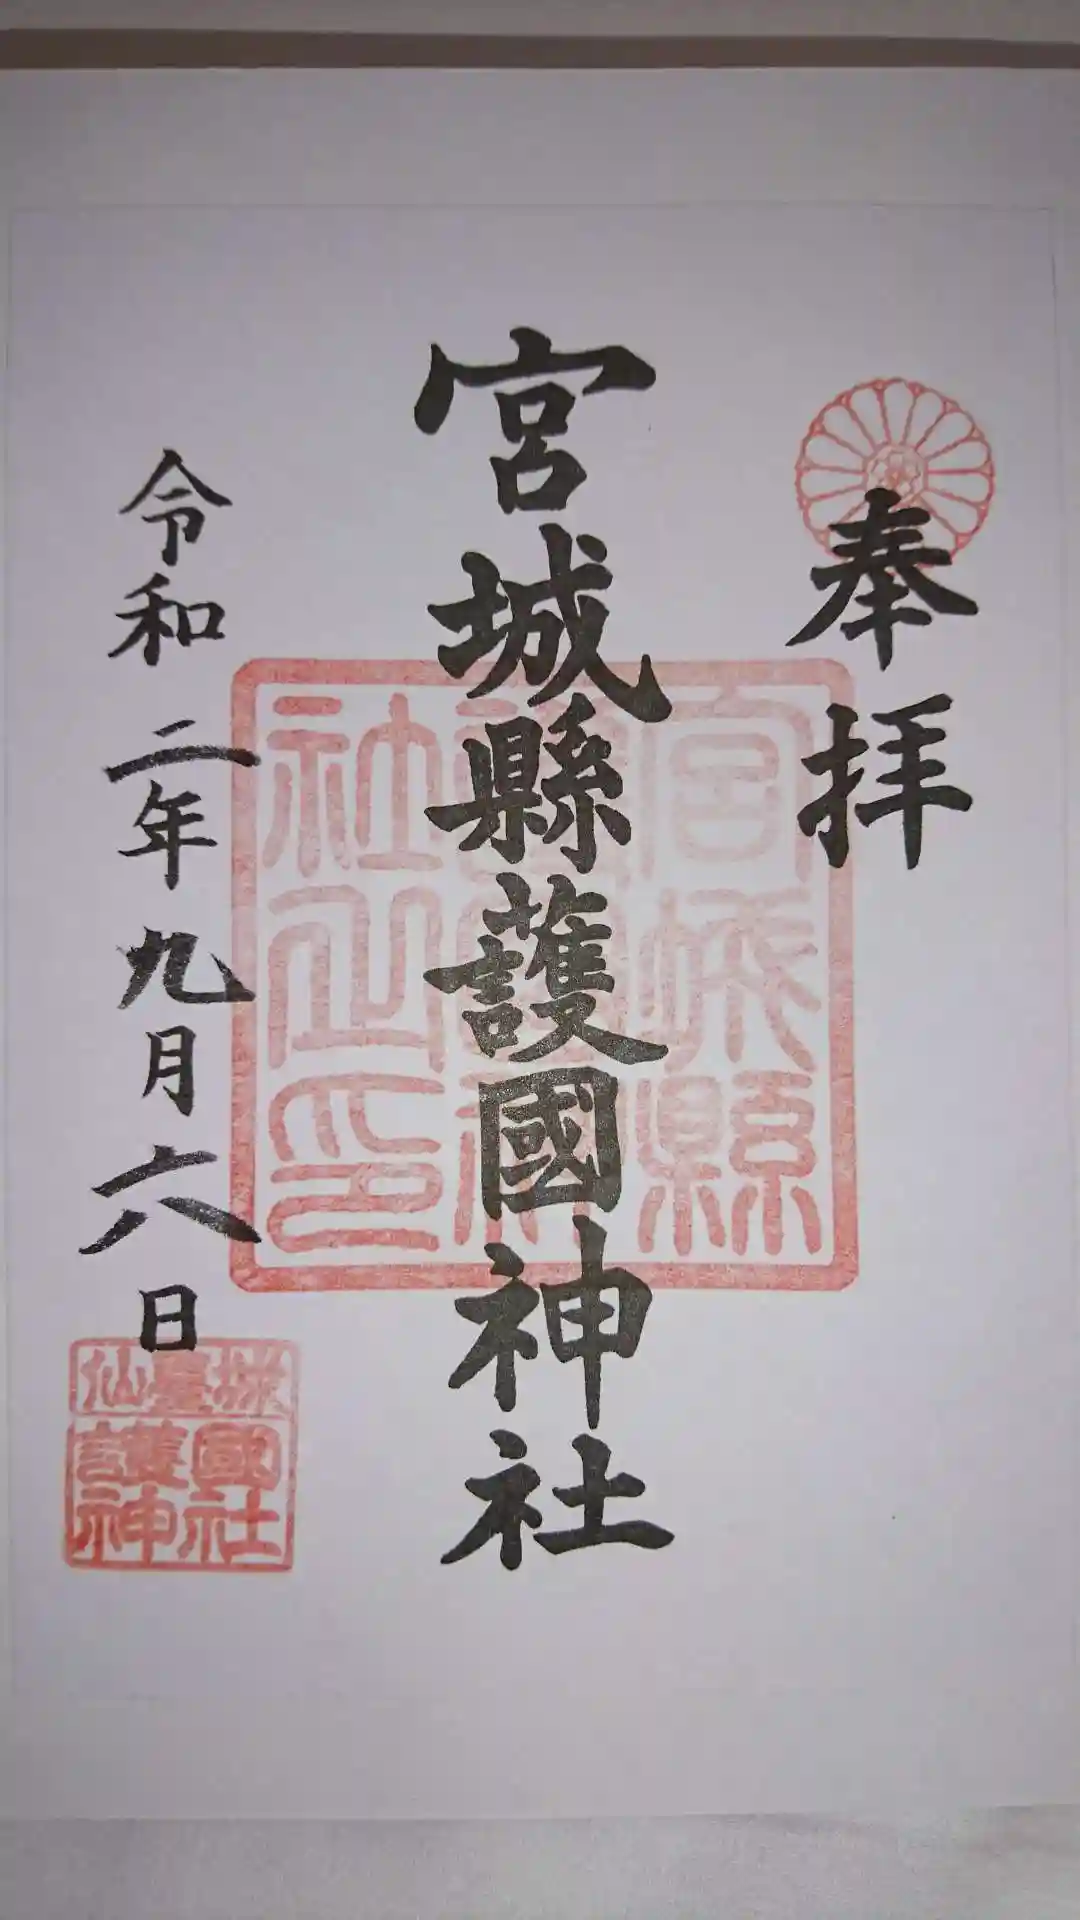 奉拝
宮城縣護國神社
令和二年九月六日
宮城縣
護國神
社之印
仙臺城
護國
神社